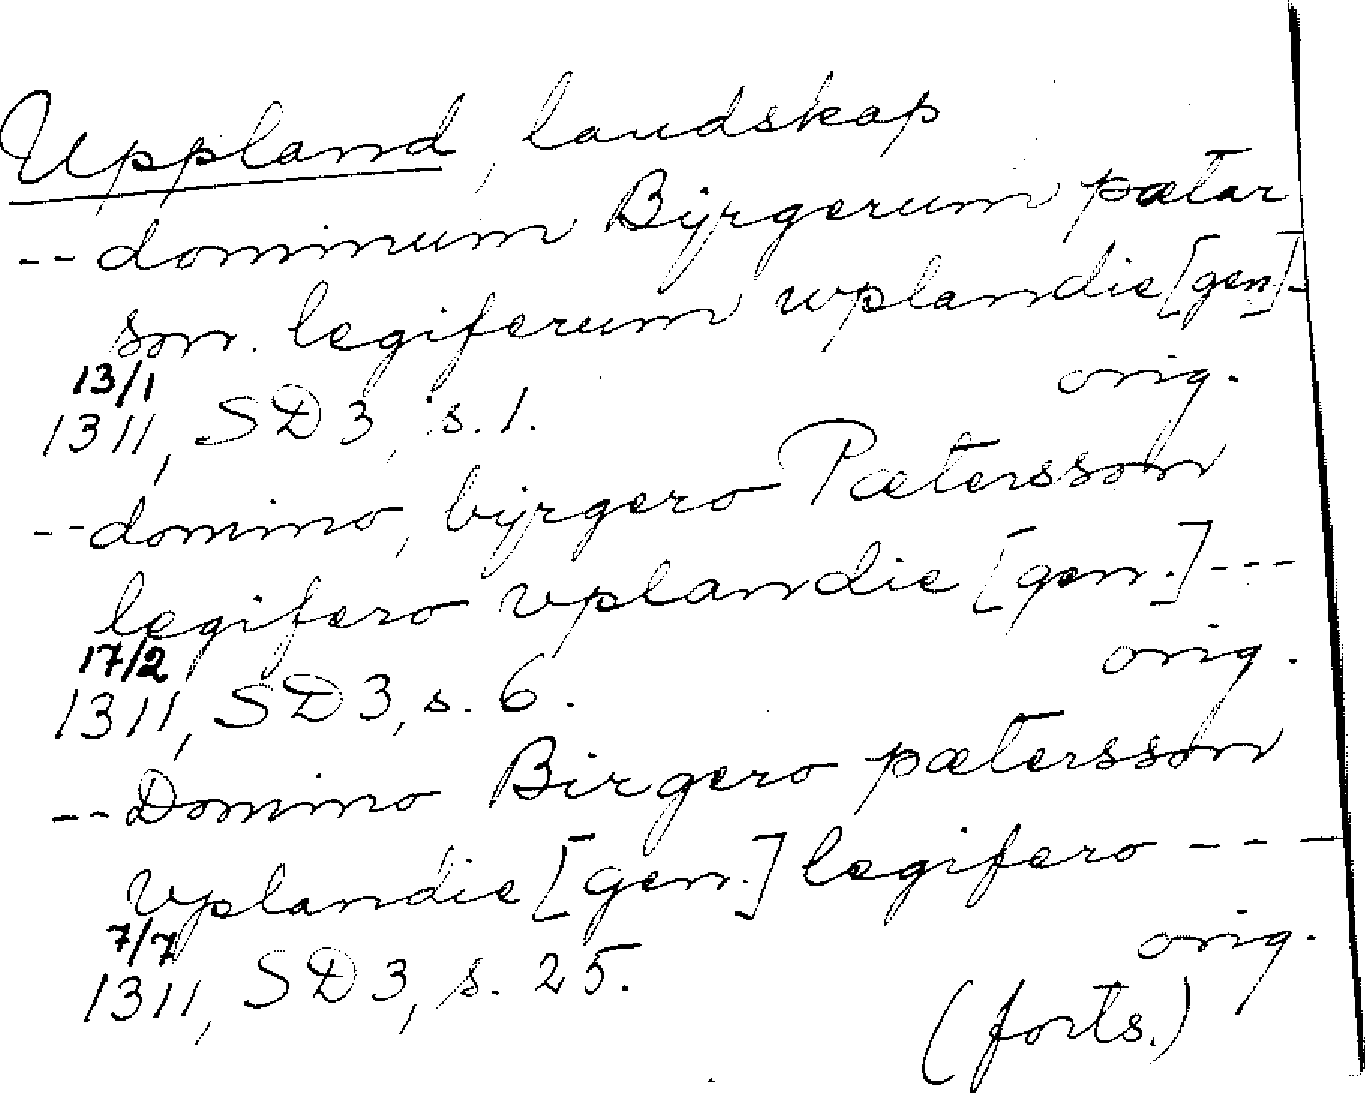 Uppland, landskap
-- dominum Bÿrgerum pætar
son. legiferum wplandie [gen]-
13/1
1311, SD 3, s. 1. orig.
-- domino, bÿrgero Pætersson
legifero vplandie [gen.] ---
17/2
1311, SD 3, s. 6. orig.
-- Domino Birgero pætersson
Vplandie [gen.] legifero ---
7/7
1311, SD 3, s. 25. orig.
(forts.)